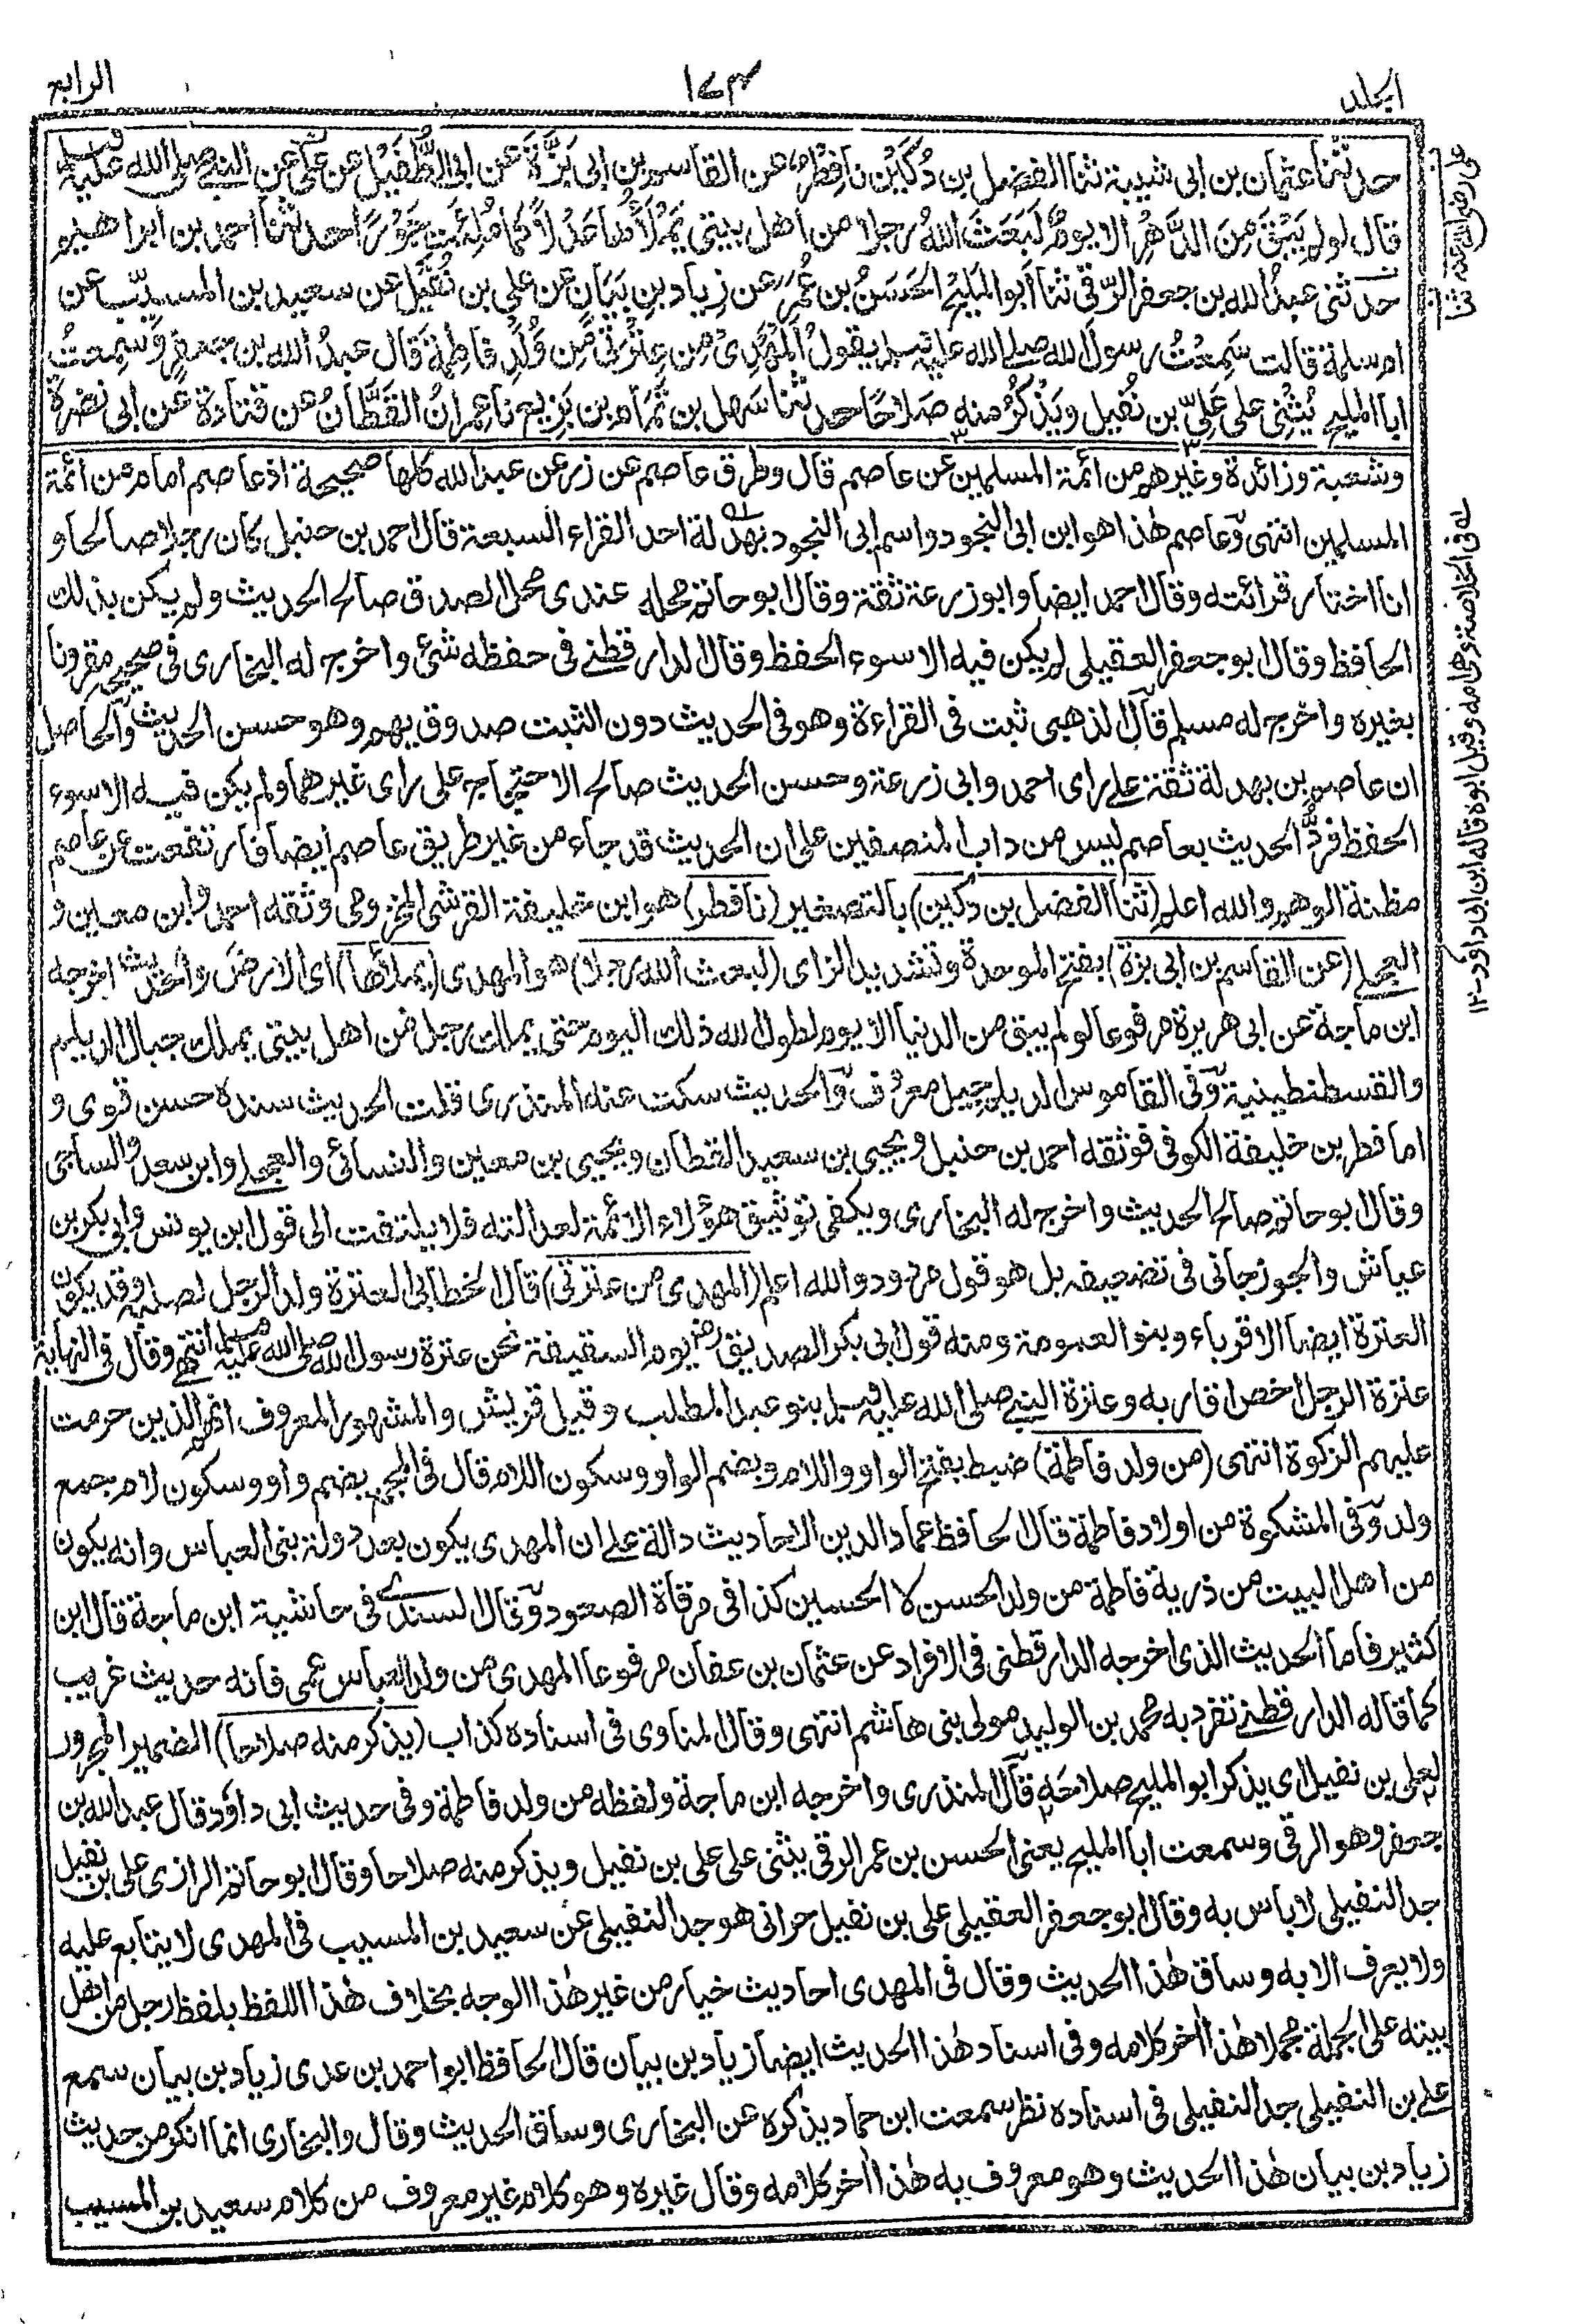 الجلد
١٧٤
الرابع
حدثنا عثمان بن ابى شيبة ثنا الفضل بن دُكَيْن نا فِطْر عن القاسم بن ابى بَزَّةَ عن ابى الطُّفَيْل عن على عن النبى صلى الله عليه وسلم
قال لو لم يَبْقَ مِنَ الدَّهْرِ الا يومٌ لَبَعَثَ اللهُ رجلا من اهل بيتى يَمْلَأُها عَدْلاً كما مُلِئَت جَوْرًا حدثنا احمد بن ابراهيم
حدثنى عبدُ الله بن جعفر الرَّقى ثنا ابو المَلِيْح الحَسَنُ بن عُمَرَ عن زِيَاد بنِ بَيَانٍ عن على بن نُفَيْل عن سعيد بن المسيّب عن
ام سلمة قالت سَمِعْتُ رسولَ الله صلى الله عليه وسلم يقولُ الْمَهْدِىُ مِن عِتْرَتِى مِن وُلْدِ فاطِمَةَ قال عبدُ الله بن جعفرٍ وَسَمِعتُ
ابا المليح يُثْنِى على عَلِىّ بن نُفيل ويَذْكُرُ منه صَلاحًا حدثنا سَهل بن تَمَّام بن بَزِيع نا عِمرانُ القَطَّانُ عن قتادةَ عن ابى نضرةَ
وشعبة وزائدة وغيرهم من ائمة المسلمين عن عاصم قال وطرق عاصم عن زر عن عبد الله كلها صحيحة اذ عاصم امام من ائمة
المسلمين انتهى وعاصم هٰذا هو ابن ابى النجود واسم ابى النجود بهدلة احد القراء السبعة قال احمد بن حنبل كان رجلا صالحا و
انا اختار قرائته وقال احمد ايضا وابو زرعة ثقة وقال ابو حاتم محله عندى محل الصدق صالح الحديث ولم يكن بذلك
الحافظ وقال ابو جعفر العقيلى لم يكن فيه الا سوء الحفظ وقال الدارقطنى فى حفظه شئ واخرج له البخارى فى صحيحه مقرونا
بغيره واخرج له مسلم قال الذهبى ثبت فى القراءة وهو فى الحديث دون الثبت صدوق يهم وهو حسن الحديث والحاصل
ان عاصم بن بهدلة ثقة على راى احمد وابى زرعة وحسن الحديث صالح الاحتجاج على راى غيرهما ولم يكن فيه الا سوء
الحفظ فردُّ الحديث بعاصم ليس من داب المنصفين على ان الحديث قد جاء من غير طريق عاصم ايضا فارتفعت عن عاصم
مظنة الوهم والله اعلم (ثنا الفضل بن دكين) بالتصغير (نا فطر) هو ابن خليفة القرشى المخزومى وثقه احمد وابن معين و
العجلى (عن القاسم بن ابى بزة) بفتح الموحدة وتشديد الزاى (لبعث الله رجلا) هو المهدى (يملأها) اى الارض والحديث اخرجه
ابن ماجة عن ابى هريرة مرفوعا لو لم يبق من الدنيا الا يوم لطول الله ذلك اليوم حتى يملك رجل من اهل بيتى يملك جبال الديلم
والقسطنطينية وفى القاموس الديلم جبل معروف والحديث سكت عنه المنذرى قلت الحديث سنده حسن قوى و
اما فطر بن خليفة الكوفى فوثقه احمد بن حنبل ويحيى بن سعيد القطان ويحيى بن معين والنسائى والعجلى وابن سعد والساجى
وقال ابو حاتم صالح الحديث واخرج له البخارى ويكفى توثيق هؤلاء الائمة لعدالته فلا يلتفت الى قول ابن يونس وابى بكر بن
عياش والجوزجانى فى تضعيفه بل هو قول مردود والله اعلم (المهدى من عترتى) قال الخطابى العترة ولد الرجل لصلبه وقد يكون
العترة ايضا الاقرباء وبنو العمومة ومنه قول ابى بكر الصديق رض يوم السقيفة نحن عترة رسول الله صلى الله عليه وسلم انتهى وقال فى النهاية
عترة الرجل اخص اقاربه وعترة النبى صلى الله عليه وسلم بنو عبد المطلب وقيل قريش والمشهور المعروف انهم الذين حرمت
عليهم الزكوة انتهى (من ولد فاطمة) ضبط بفتح الواو واللام وبضم الواو وسكون اللام قال فى المجمع بضم واو وسكون لام جمع
ولد وفى المشكوة من اولاد فاطمة قال الحافظ عماد الدين الاحاديث دالة على ان المهدى يكون بعد دولة بنى العباس وانه يكون
من اهل البيت من ذرية فاطمة من ولد الحسن لا الحسين كذا فى مرقاة الصعود وقال السندى فى حاشية ابن ماجة قال ابن
كثير فاما الحديث الذى اخرجه الدارقطنى فى الافراد عن عثمان بن عفان مرفوعا المهدى من ولد العباس عمى فانه حديث غريب
كما قاله الدارقطنى تفرد به محمد بن الوليد مولى بنى هاشم انتهى وقال المناوى فى اسناده كذاب (يذكر منه صلاحا) الضمير المجرور
لعلى بن نفيل اى يذكر ابو المليح صلاحه قال المنذرى واخرجه ابن ماجة ولفظه من ولد فاطمة وفى حديث ابى داؤد قال عبد الله بن
جعفر وهو الرقى وسمعت ابا المليح يعنى الحسن بن عمر الرقى يثنى على على بن نفيل ويذكر منه صلاحا وقال ابو حاتم الرازى على بن نفيل
جد النفيلى لا باس به وقال ابو جعفر العقيلى على بن نفيل حرانى هو جد النفيلى عن سعيد بن المسيب فى المهدى لا يتابع عليه
ولا يعرف الا به وساق هٰذا الحديث وقال فى المهدى احاديث خيار من غير هٰذا الوجه بخلاف هٰذا اللفظ بلفظ رجل من اهل
بيته على الجملة مجملا هٰذا اٰخر كلامه وفى اسناد هٰذا الحديث ايضا زياد بن بيان قال الحافظ ابو احمد بن عدى زياد بن بيان سمع
على بن النفيلى جد النفيلى فى اسناده نظر سمعت ابن حماد يذكره عن البخارى وساق الحديث وقال والبخارى انما انكر من حديث
زياد بن بيان هٰذا الحديث وهو معروف به هٰذا اٰخر كلامه وقال غيره وهو كلام غير معروف من كلام سعيد بن المسيب
على رضى الله عنه
له فى الخلاصة وهى امه وقيل ابوه قاله ابن ابى داؤد ١٢